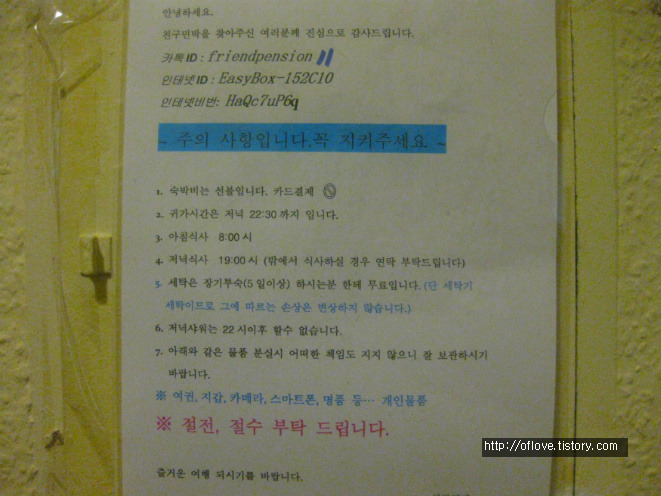 안녕하세요.
친구민박을 찾아주신 여러분께 진심으로 감사드립니다.
카톡ID : friendpension
인테넷ID : EasyBox-152C10
인테넷비번: HaQc7uP6q
~ 주의 사항입니다.꼭 지켜주세요 ~
1. 숙박비는 선불입니다. 카드결제
2. 귀가시간은 저녁 22:30까지 입니다.
3. 아침식사 8:00시
4. 저녁식사 19:00시 (밖에서 식사하실 경우 연락 부탁드립니다)
5. 세탁은 장기투숙(5일이상) 하시는분 한테 무료입니다. (단 세탁기
세탁이므로 그에 따르는 손상은 변상하지 않습니다.)
6. 저녁샤워는 22시이후 할수 없습니다.
7. 아래와 같은 물품 분실시 어떠한 책임도 지지 않으니 잘 보관하시기
바랍니다.
※ 여권, 지갑, 카메라, 스마트폰, 명품 등… 개인물품
※ 절전, 절수 부탁 드립니다.
http://oflove.tistory.com
즐거운 여행 되시기를 바랍니다.